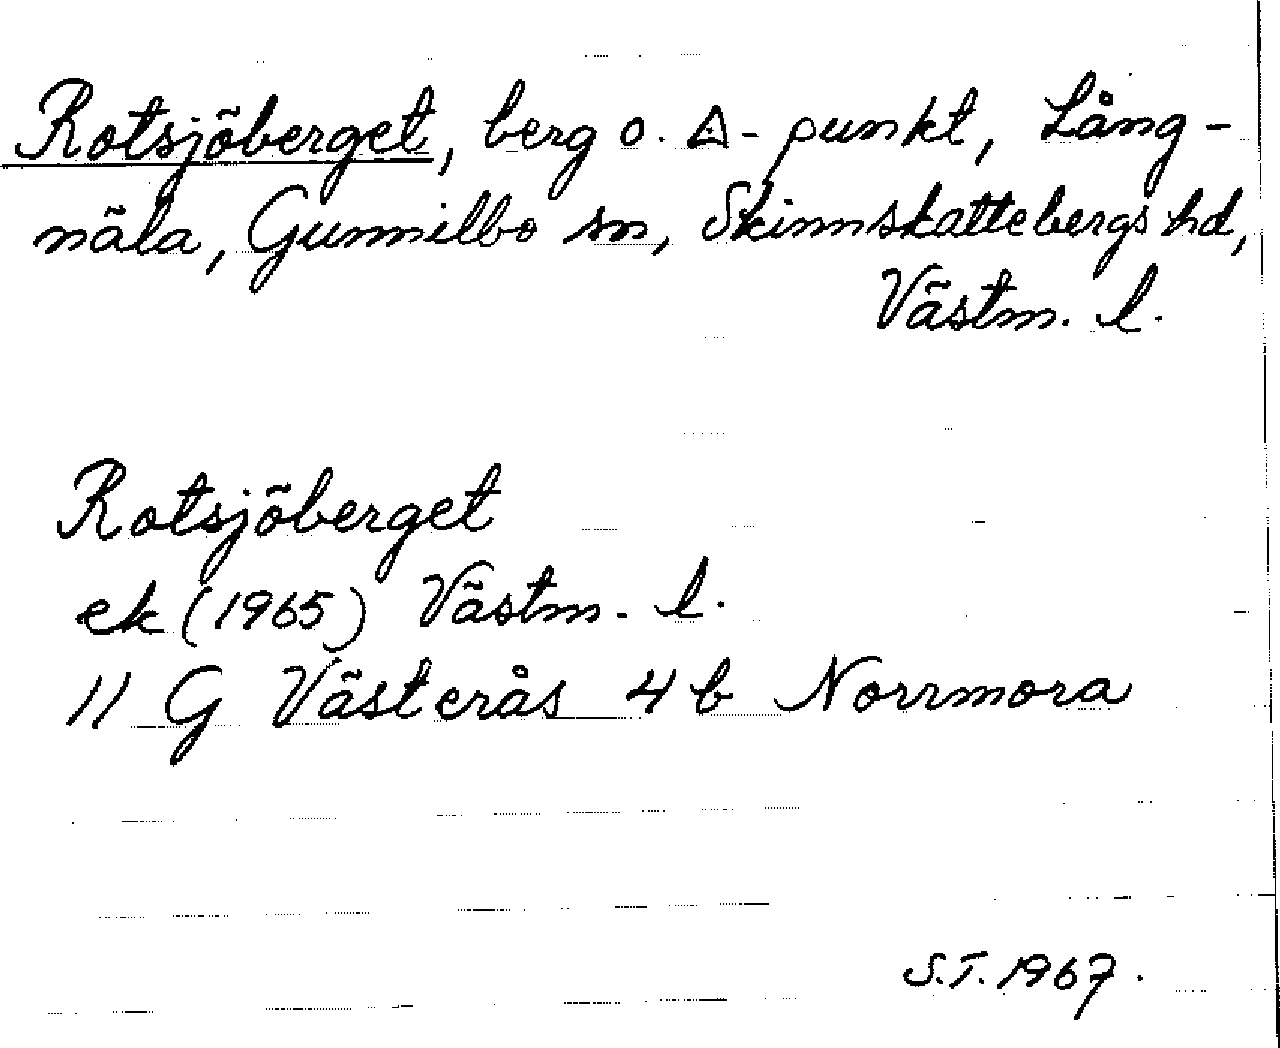 Rotsjöberget, berg o. △-punkt, Lång-
näla, Gunnilbo sn, Skinnskattebergs hd,
Västm. l.
Rotsjöberget
ek (1965) Västm. l.
11 G Västerås 4 b Norrmora
S.T. 1967.